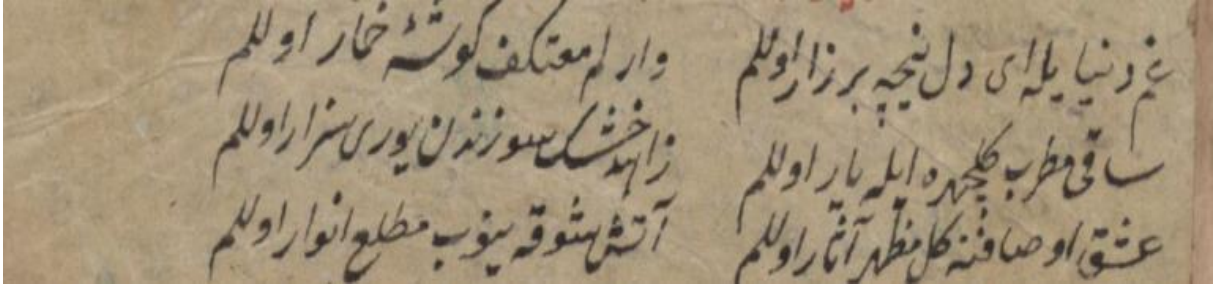 غم دنیا یله ای دل نیچه بر زار اوللم وار لم معتکف كوشهٔ خمار اوللم
ساقی مطرب كلچهره ایله یار اوللم زاهد خشك سوزندن یوری بیزار اوللم
عشق اوصافنه كل مظهر آثار اوللم آتش شوقه ینوب مطلع انوار اوللم